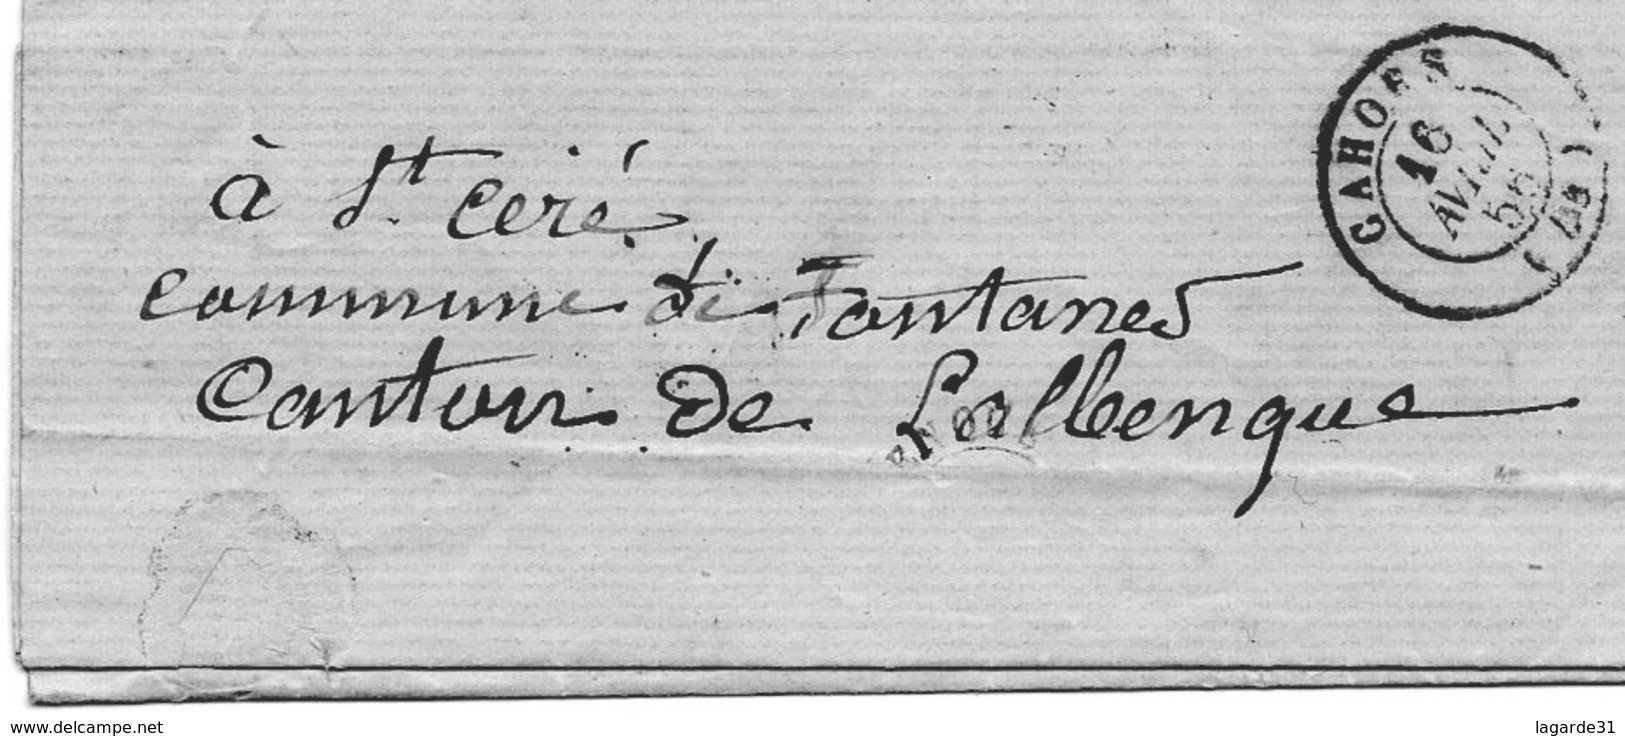 CAHORS
16
AVRIL
56
(46)
à St. Ceré
commune de Fontanes
Canton De Lalbenque
www.delcampe.net
lagarde31